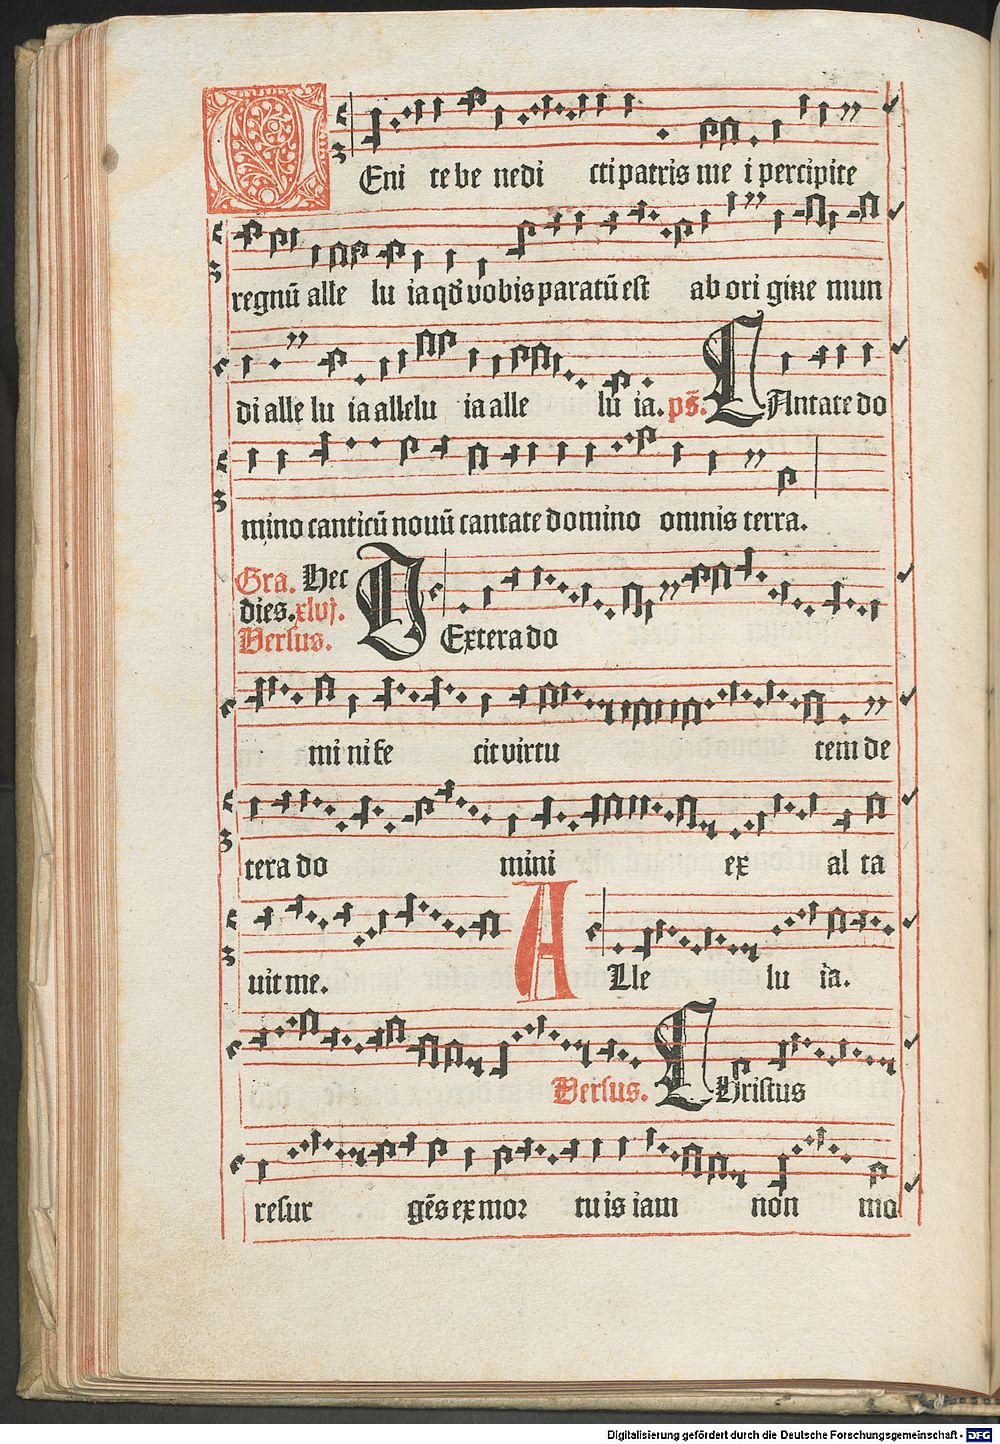 VEni te be nedi cti patris me i percipite
regnū alle lu ia qđ vobis paratū est ab ori gine mun
di alle lu ia allelu ia alle lu ia. ps̄. CAntate do
mino canticū nouū cantate domino omnis terra.
Gra. Hec
dies. xlvj.
Versus. DExtera do
mini fe cit virtu tem de
tera do mini ex al ta
uit me. ALle lu ia.
Versus. CHristus
resur gēs ex mor tu is iam non mo
Digitalisierung gefördert durch die Deutsche Forschungsgemeinschaft - DFG